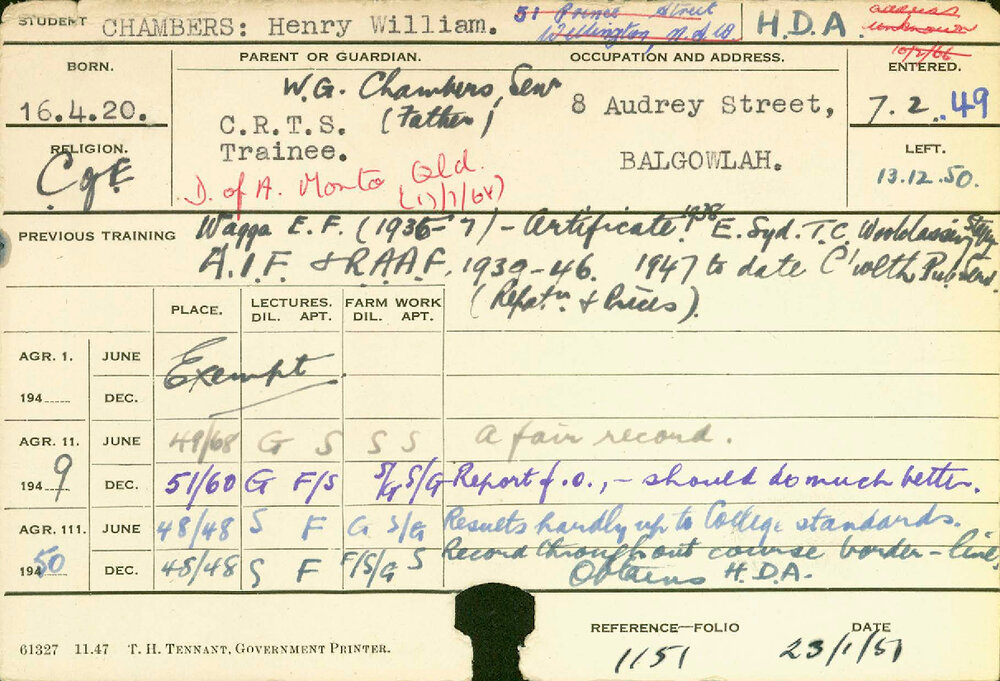 STUDENT CHAMBERS: Henry William. 51 Prince Street H.D.A. address
Wellington, N.S.W. unknown
10/2/66
BORN. PARENT OR GUARDIAN. OCCUPATION AND ADDRESS. ENTERED.
W.G. Chambers, Senr
16.4.20. C.R.T.S. (Father) 8 Audrey Street, 7.2.49
Trainee. BALGOWLAH.
RELIGION. LEFT.
C of E D. of A. Monto Qld. 13.12.50.
PREVIOUS TRAINING Wagga E.F. (1936-7) - Certificate. 1938 E. Syd. T.C.
A.I.F. & R.A.A.F. 1939-46. 1947 to date C'wlth Pub. Serv.
(Repatn. & Prices).
PLACE. LECTURES. FARM WORK
DIL. APT. DIL. APT.
AGR. 1. JUNE Exempt
194 DEC.
AGR. 11. JUNE 49/68 G S S S A fair record.
1949 DEC. 51/60 G F/S S/G S/G Report f.o., - should do much better.
AGR. 111. JUNE 48/48 S F G S/G Results hardly up to College standards.
1950 DEC. 48/48 S F F/S/G S Record throughout course border-line.
Obtains H.D.A.
REFERENCE-FOLIO DATE
1151 23/1/51
61327 11.47 T. H. TENNANT, GOVERNMENT PRINTER.